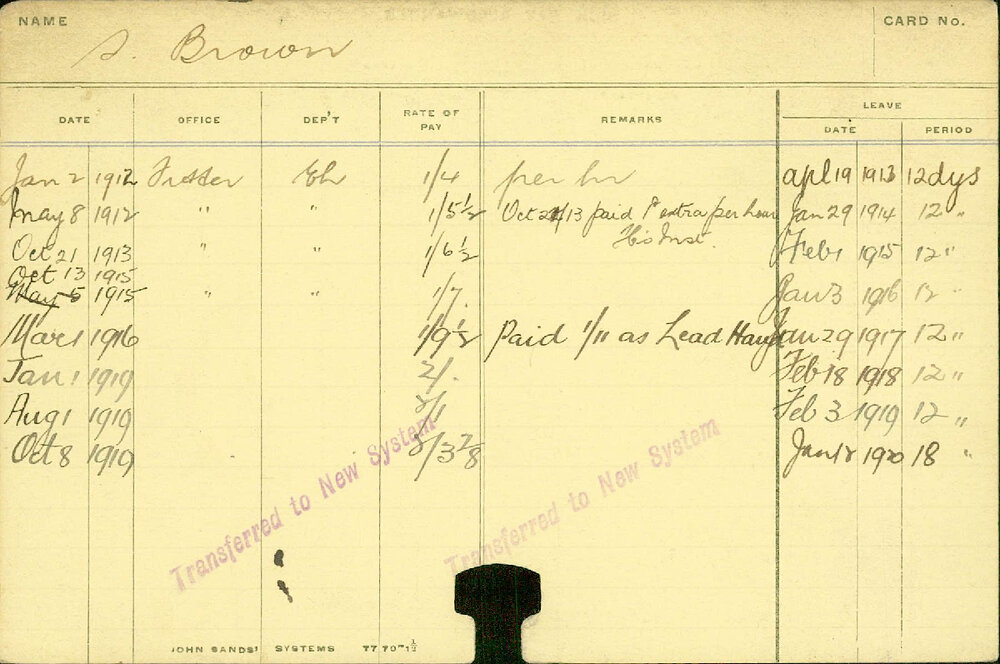 NAME CARD No.
S. Brown
LEAVE
DATE OFFICE DEP'T RATE OF PAY REMARKS DATE PERIOD
Jan 2 1912 Fitter Eh 1/4 per hr apl 19 1913 12 dys
May 8 1912 " " 1/5½ Oct 21/13 paid 1d extra per hour Jan 29 1914 12 "
His Inst.
Oct 21 1913 " " 1/6½ Feb 1 1915 12 "
Oct 13 1915
May 5 1915 " " 1/7. Jan 3 1916 12 "
Mar 1 1916 1/9½ Paid 1/11 as Lead Hand Jan 29 1917 12 "
Jan 1 1919 2/. Feb 18 1918 12 "
Aug 1 1919 2/1 Feb 3 1919 12 "
Oct 8 1919 2/3⅞ Jan 1920 18 "
Transferred to New System Transferred to New System
JOHN SANDS' SYSTEMS